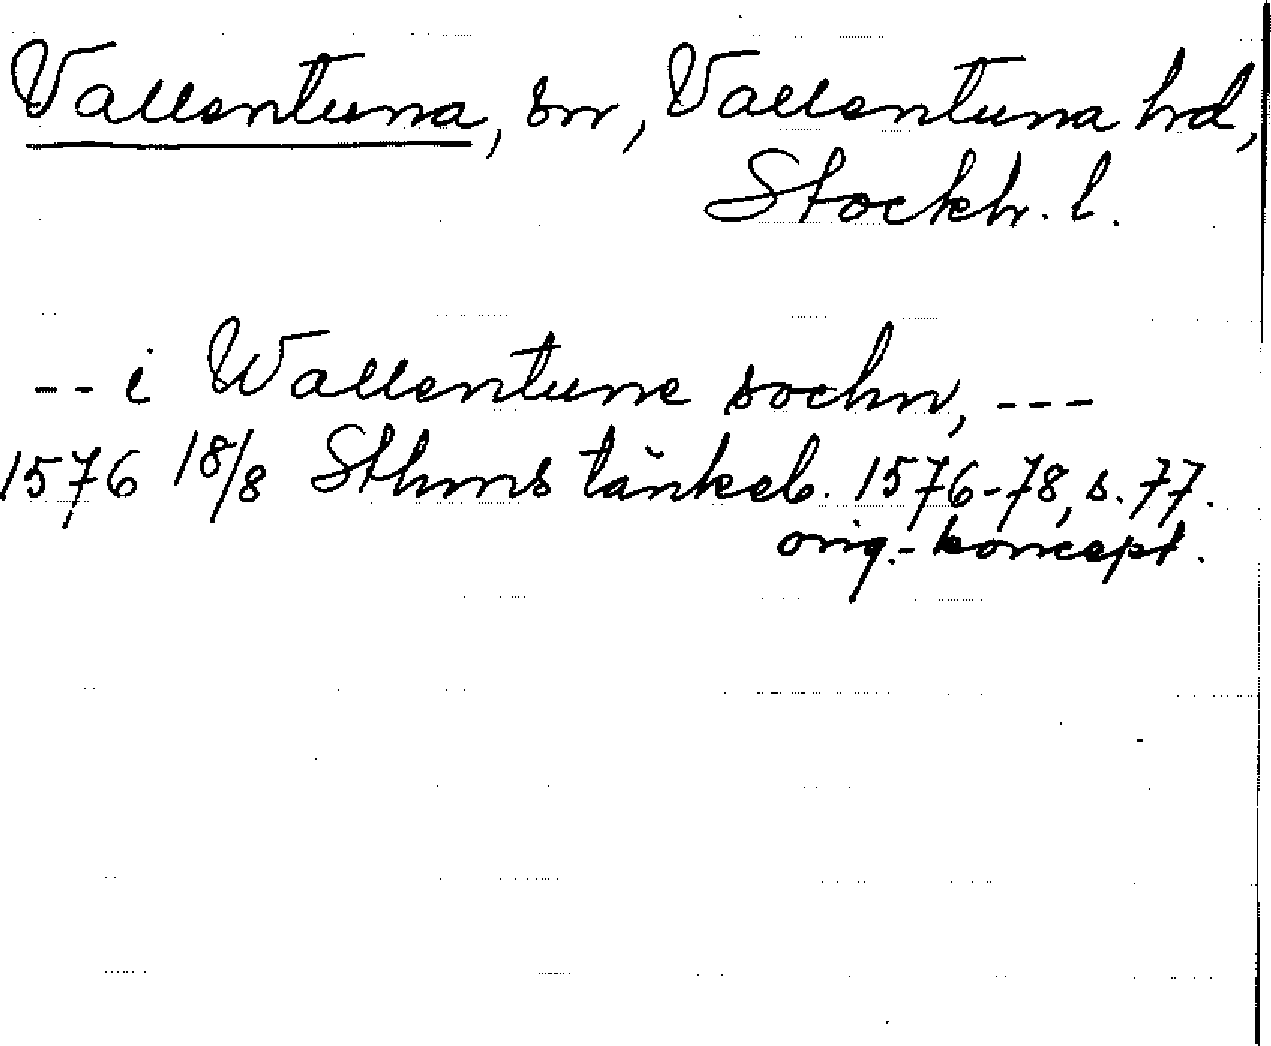 Vallentuna, sn, Vallentuna hd,
Stockh. l.
-- i Wallentune sochn, ---
1576 18/8 Sthms tänkeb. 1576-78, s. 77.
orig.- koncept.